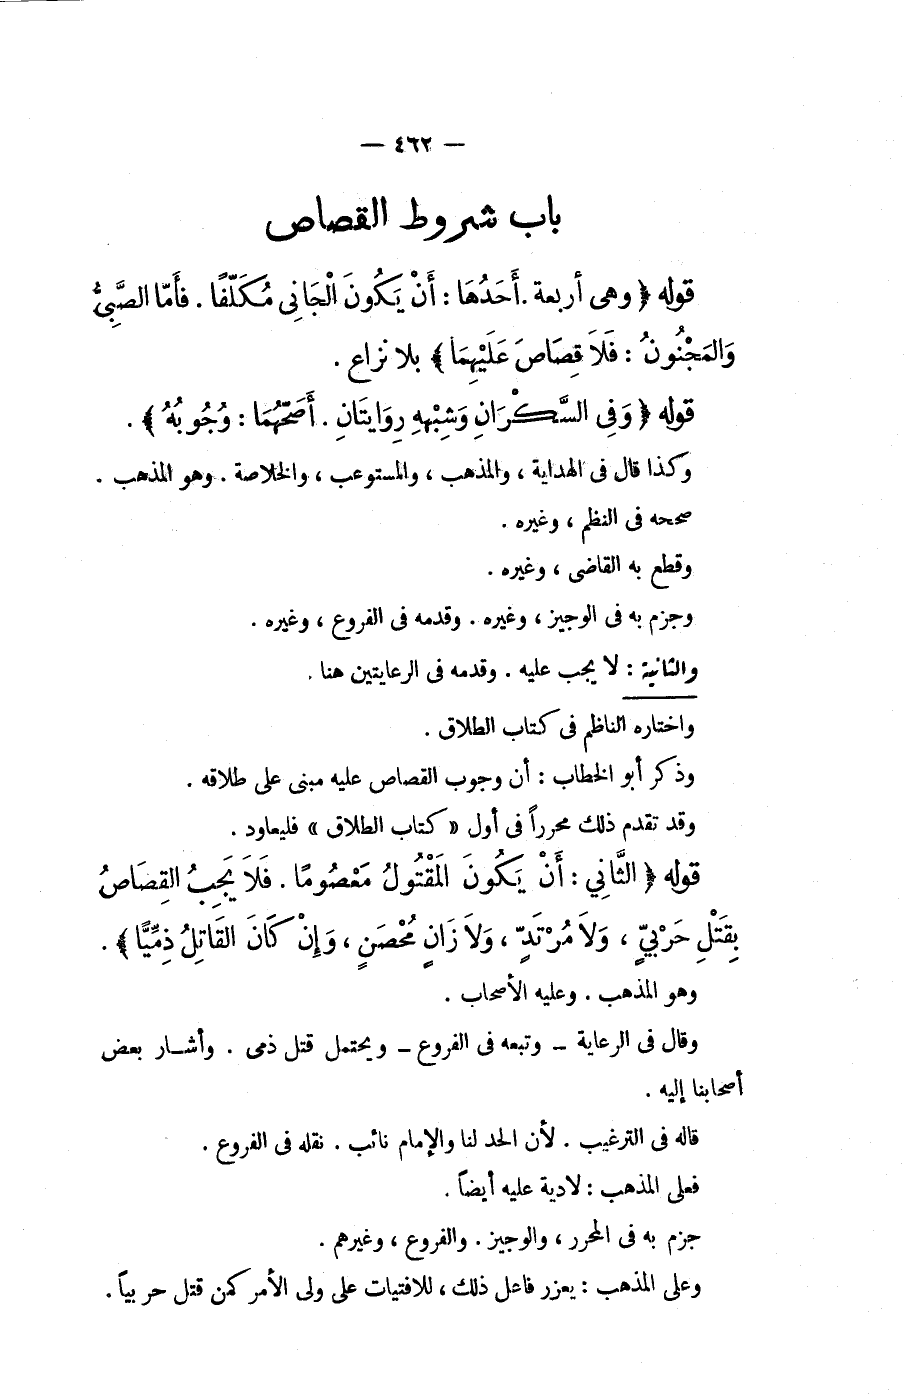 — ٤٦٢ —
باب شروط القصاص
قوله ﴿ وهى أربعة . أَحَدُهَا : أَنْ يَكُونَ الْجَانِى مُكَلَّفًا . فأَمّا الصَّبِىُّ
وَالمَجْنُونُ : فَلاَ قِصَاصَ عَلَيْهِمَا ﴾ بلا نزاع .
قوله ﴿ وَفِى السَّكْرَانِ وَشِبْهِهِ رِوَايَتَانِ . أَصَحُّهُمَا : وُجُوبُهُ ﴾ .
وكذا قال فى الهداية ، والمذهب ، والمستوعب ، والخلاصة . وهو المذهب .
صححه فى النظم ، وغيره .
وقطع به القاضى ، وغيره .
وجزم به فى الوجيز ، وغيره . وقدمه فى الفروع ، وغيره .
والثانية : لا يجب عليه . وقدمه فى الرعايتين هنا .
واختاره الناظم فى كتاب الطلاق .
وذكر أبو الخطاب : أن وجوب القصاص عليه مبنى على طلاقه .
وقد تقدم ذلك محرراً فى أول « كتاب الطلاق » فليعاود .
قوله ﴿ الثَّانِي : أَنْ يَكُونَ المَقْتُولُ مَعْصُومًا . فَلاَ يَجِبُ القِصَاصُ
بِقَتْلِ حَرْبِيٍّ ، وَلاَ مُرْتَدٍّ ، وَلاَ زَانٍ مُحْصَنٍ ، وَإِنْ كَانَ القَاتِلُ ذِمِّيًّا ﴾ .
وهو المذهب . وعليه الأصحاب .
وقال فى الرعاية – وتبعه فى الفروع – ويحتمل قتل ذمى . وأشار بعض
أصحابنا إليه .
قاله فى الترغيب . لأن الحد لنا والإمام نائب . نقله فى الفروع .
فعلى المذهب : لادية عليه أيضاً .
جزم به فى المحرر ، والوجيز . والفروع ، وغيرهم .
وعلى المذهب : يعزر فاعل ذلك ، للافتيات على ولى الأمر كمن قتل حربياً .